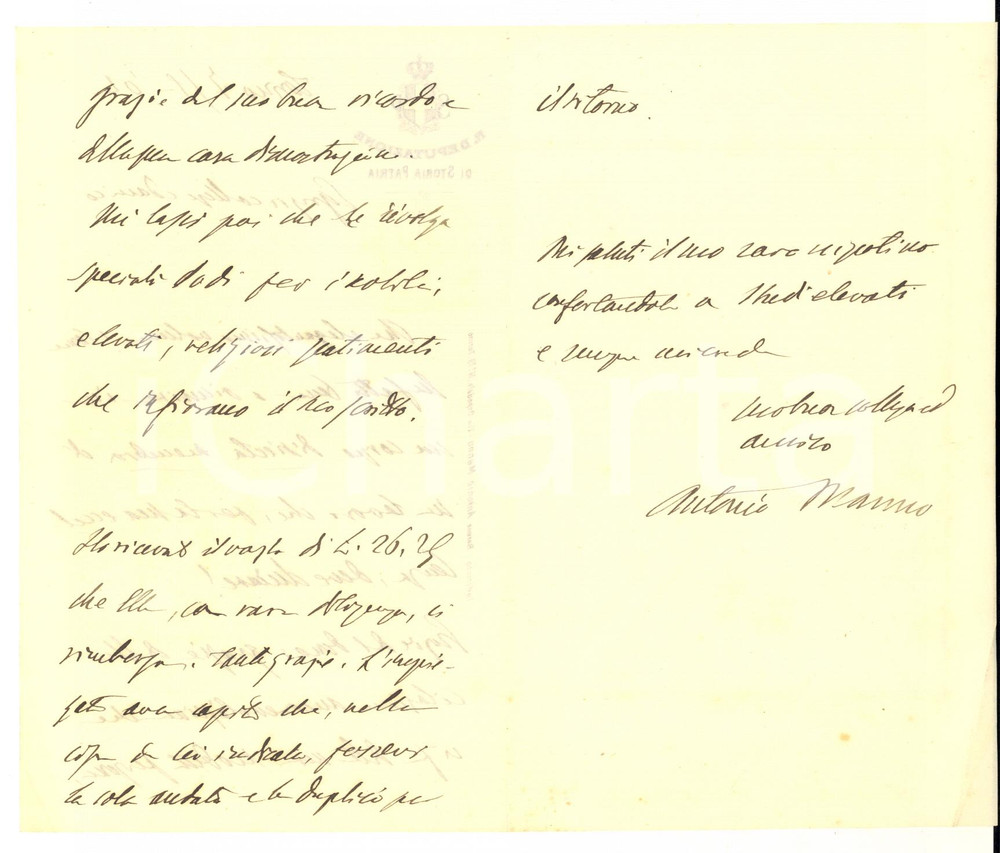 grazie del suo buon ricordo e
della sua cara dimostrazione.
Mi lasci poi che Le rivolga
speciali lodi per i nobili,
elevati, religiosi sentimenti
che infiorano il suo scritto.
Ho ricevuto il vaglia di L. 26,25
che Ella, con rara diligenza, ci
rimborsa. Tante grazie. L'impie-
gato aveva capito che, nella
copia da Lei indicata, fossevi
la sola andata e la duplicò per
il ritorno.
Mi saluti il suo caro nipotino
confortandolo a studi elevati
e sempre mi creda
suo buon collega ed
amico
Antonio Manno
R. DEPUTAZIONE
DI STORIA PATRIA
rCharta